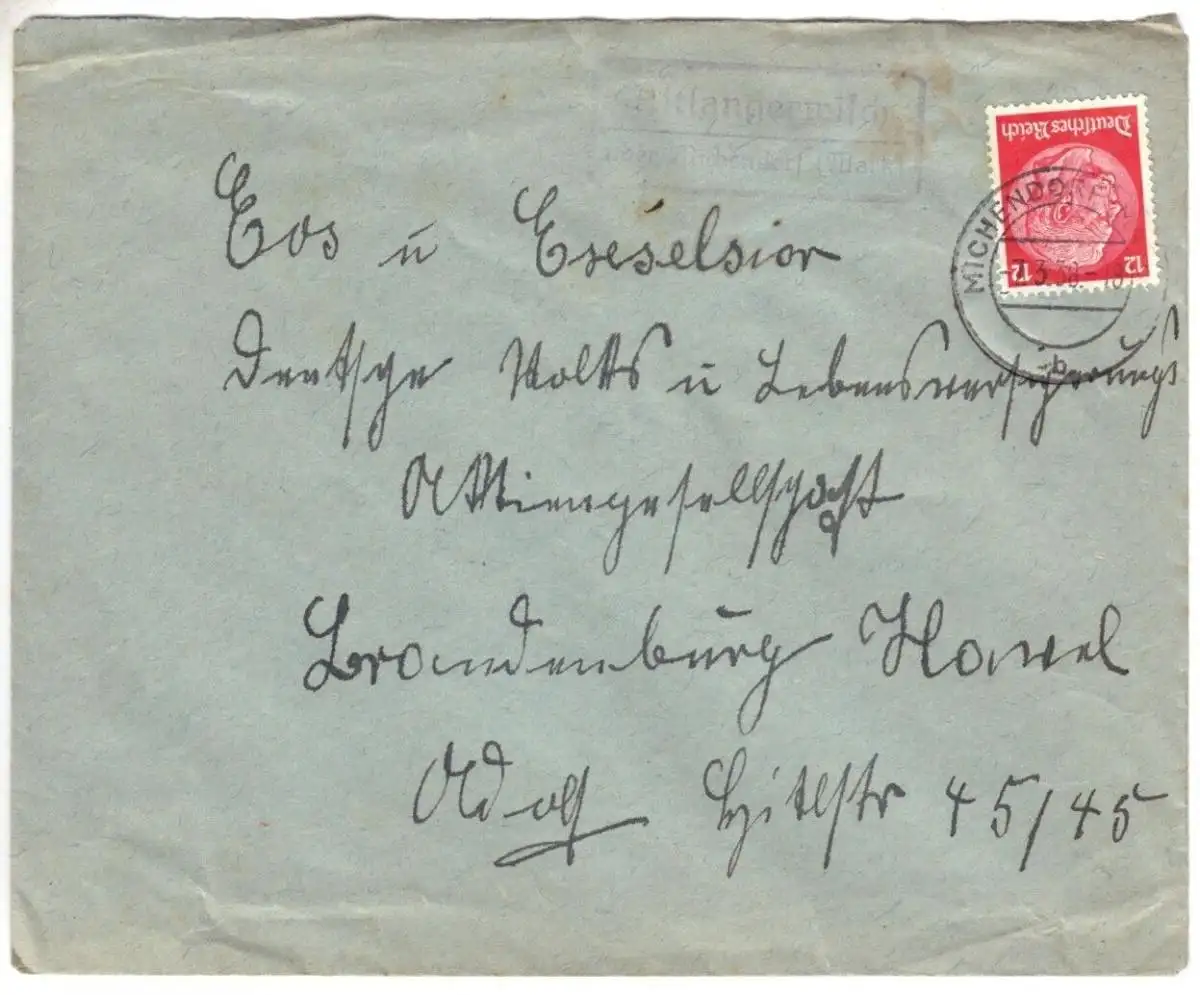 Altlangerwisch
über Michendorf (Mark)
Deutsches Reich
12 12
MICHENDORF
-7.3.38.-18
Eos u Exeselsior
Deutsche Volks u Lebensversicherungs
Aktiengesellschaft
Brandenburg Havel
Adolf Hitlstr 45/45